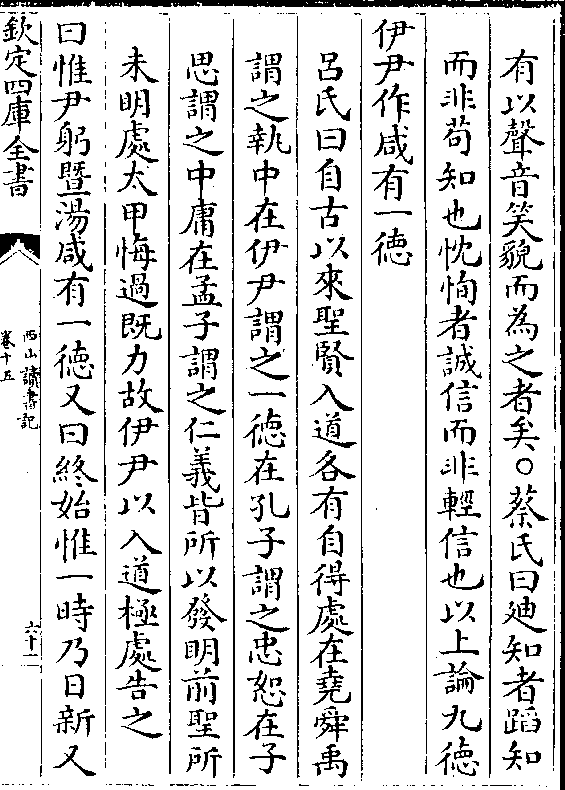 有以聲音笑貌而為之者矣○蔡氏曰廸知者蹈知
而非苟知也忱恂者誠信而非輕信也以上論九徳
伊尹作咸有一徳
呂氏曰自古以來聖賢入道各有自得處在堯舜禹
謂之執中在伊尹謂之一徳在孔子謂之忠恕在子
思謂之中庸在孟子謂之仁義皆所以發明前聖所
未明處太甲悔過既力故伊尹以入道極處告之
曰惟尹躬暨湯咸有一徳又曰終始惟一時乃日新又
欽定四庫全書
西山讀書記
卷十五
六十二